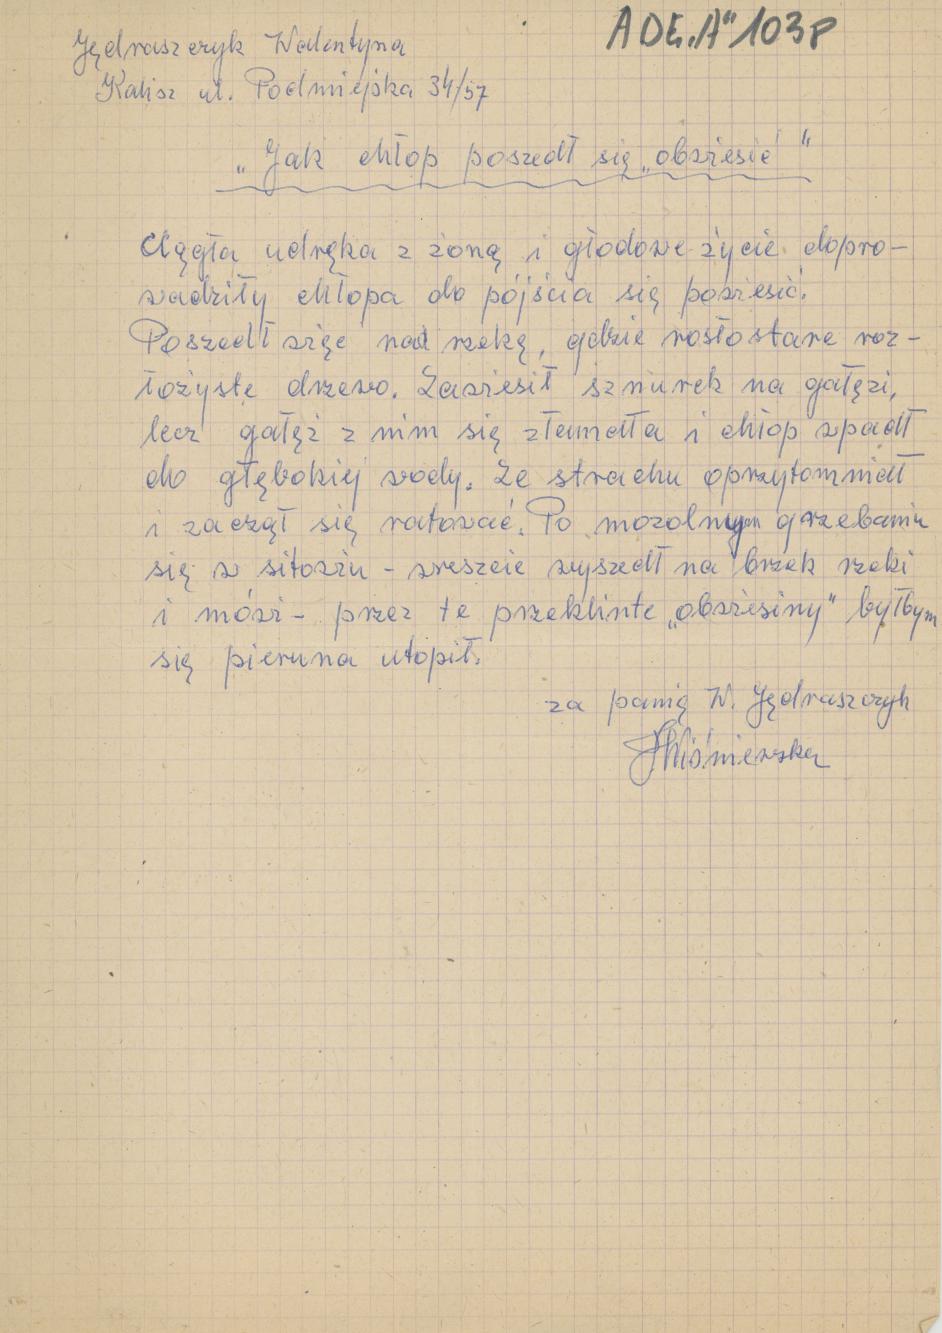 Jędraszczyk Walentyna
ADE „A" 103 P
Kalisz ul. Podmiejska 34/57
„Jak chłop poszedł się „obwiesić"
Ciągła udręka z żoną i głodowe życie dopro-
wadziły chłopa do pójścia się powiesić.
Poszedł więc nad rzekę, gdzie rosło stare roz-
łożyste drzewo. Zawiesił sznurek na gałęzi,
lecz gałęź z nim się złamała i chłop wpadł
do głębokiej wody. Ze strachu oprzytomniał
i zaczął się ratować. Po mozolnym grzebaniu
się w sitowiu - wreszcie wyszedł na brzek rzeki
i mówi - przez te przeklinte „obwiesiny" byłbym
się pieruna utopił.
za panią W. Jędraszczyk
Wiśniewska